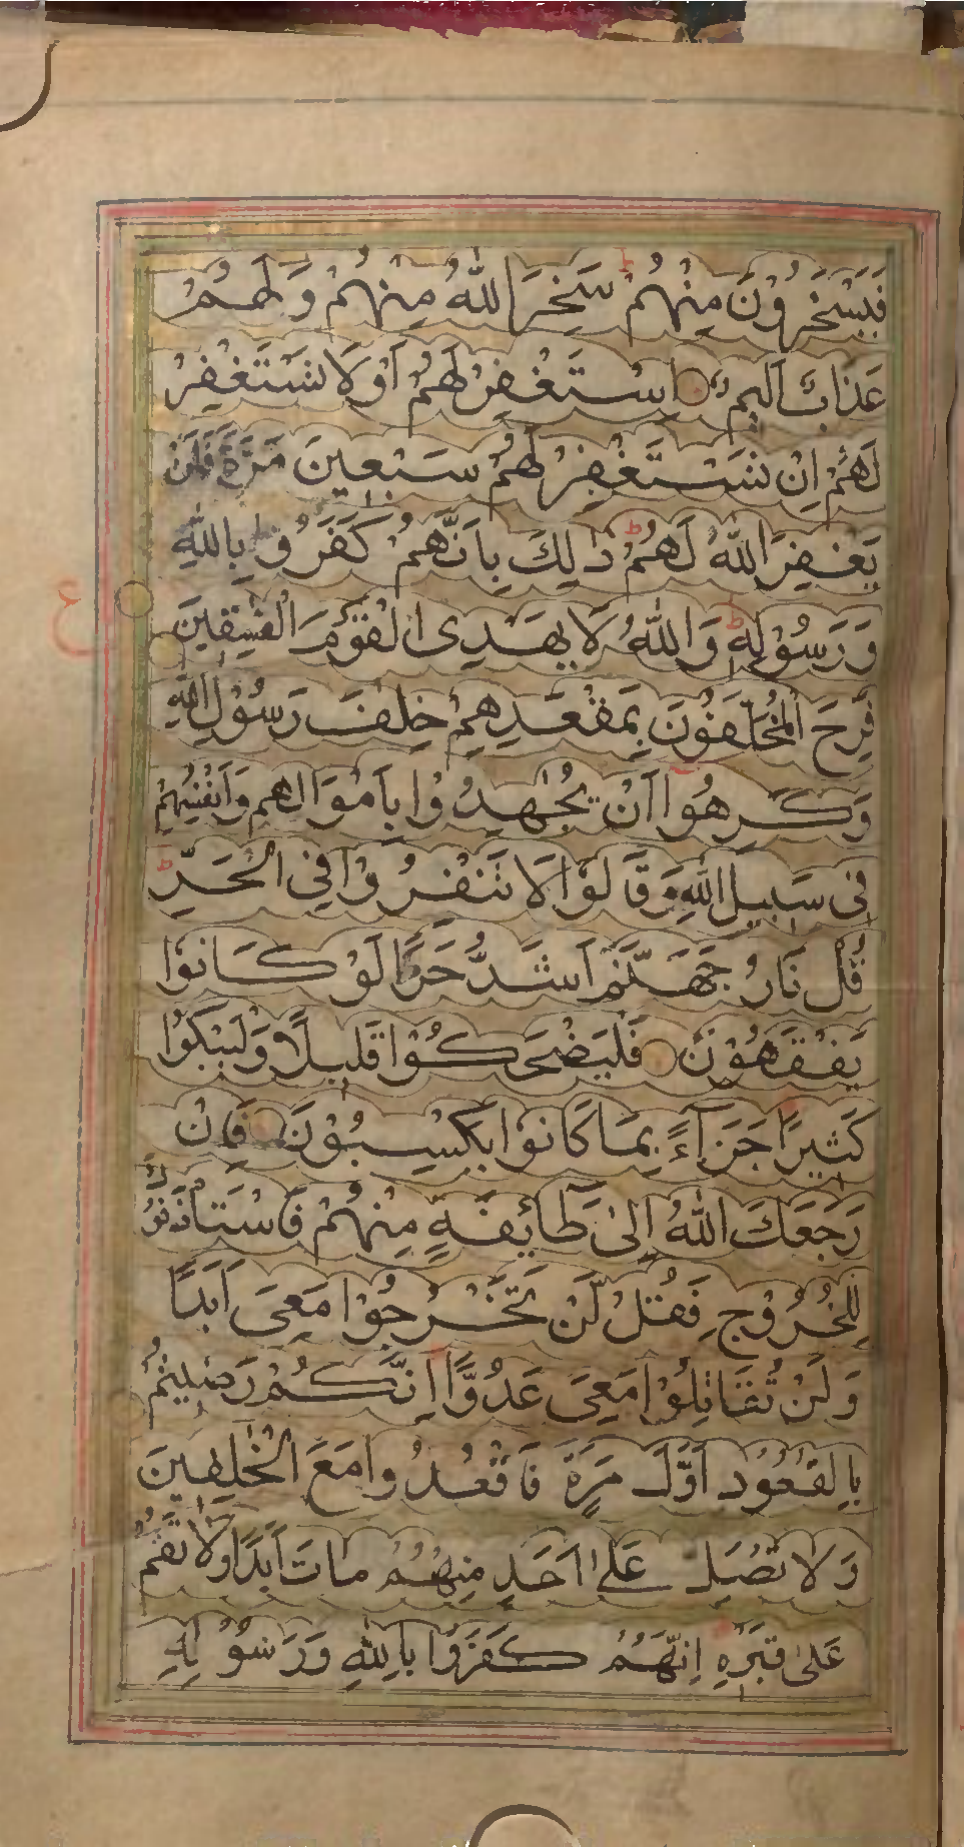 فَيَسْخَرُوْنَ مِنْهُمْ ط سَخِرَ اللّٰهُ مِنْهُمْ وَلَهُمْ
عَذَابٌ اَلِيْمٌ اِسْتَغْفِرْ لَهُمْ اَوْ لَا تَسْتَغْفِرْ
لَهُمْ اِنْ تَسْتَغْفِرْ لَهُمْ سَبْعِيْنَ مَرَّةً فَلَنْ
يَغْفِرَ اللّٰهُ لَهُمْ ط ذٰلِكَ بِاَنَّهُمْ كَفَرُوْا بِاللّٰهِ
وَرَسُوْلِهٖ ط وَاللّٰهُ لَا يَهْدِى الْقَوْمَ الْفٰسِقِيْنَ
ع
فَرِحَ الْمُخَلَّفُوْنَ بِمَقْعَدِهِمْ خِلٰفَ رَسُوْلِ اللّٰهِ
وَكَرِهُوْا اَنْ يُّجٰهِدُوْا بِاَمْوَالِهِمْ وَاَنْفُسِهِمْ
فِى سَبِيْلِ اللّٰهِ وَقَالُوْا لَا تَنْفِرُوْا فِى الْحَرِّ ط
قُلْ نَارُ جَهَنَّمَ اَشَدُّ حَرًّا لَوْ كَانُوْا
يَفْقَهُوْنَ فَلْيَضْحَكُوْا قَلِيْلًا وَّلْيَبْكُوْا
كَثِيْرًا جَزَآءً بِمَا كَانُوْا يَكْسِبُوْنَ فَاِنْ
رَجَعَكَ اللّٰهُ اِلٰى طَائِفَةٍ مِنْهُمْ فَاسْتَاْذَنُوْ
لِلْخُرُوْجِ فَقُلْ لَّنْ تَخْرُجُوْا مَعِىَ اَبَدًا
وَلَنْ تُقَاتِلُوْا مَعِىَ عَدُوًّا اِنَّكُمْ رَضِيْتُمْ
بِالْقُعُوْدِ اَوَّلَ مَرَّةٍ فَاقْعُدُوا مَعَ الْخٰلِفِيْنَ
وَلَا تُصَلِّ عَلٰى اَحَدٍ مِنْهُمْ مَاتَ اَبَدًا وَّلَا تَقُمْ
عَلٰى قَبْرِهٖ اِنَّهُمْ كَفَرُوْا بِاللّٰهِ وَرَسُوْلِهٖ